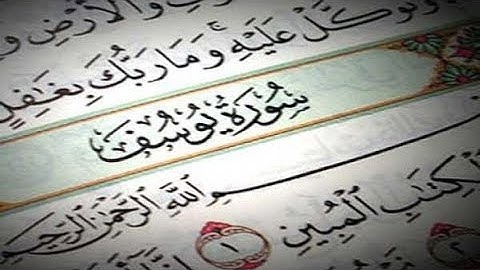 وَالْأَرْضِ وَ
وَتَوَكَّلْ عَلَيْهِ ۚ وَمَا رَبُّكَ بِغَٰفِلٍ
سُورَةُ يُوسُفَ
ـمِ ٱللَّهِ ٱلرَّحْمَٰنِ ٱلرَّحِيمِ
ٱلْكِتَٰبِ ٱلْمُبِينِ ١